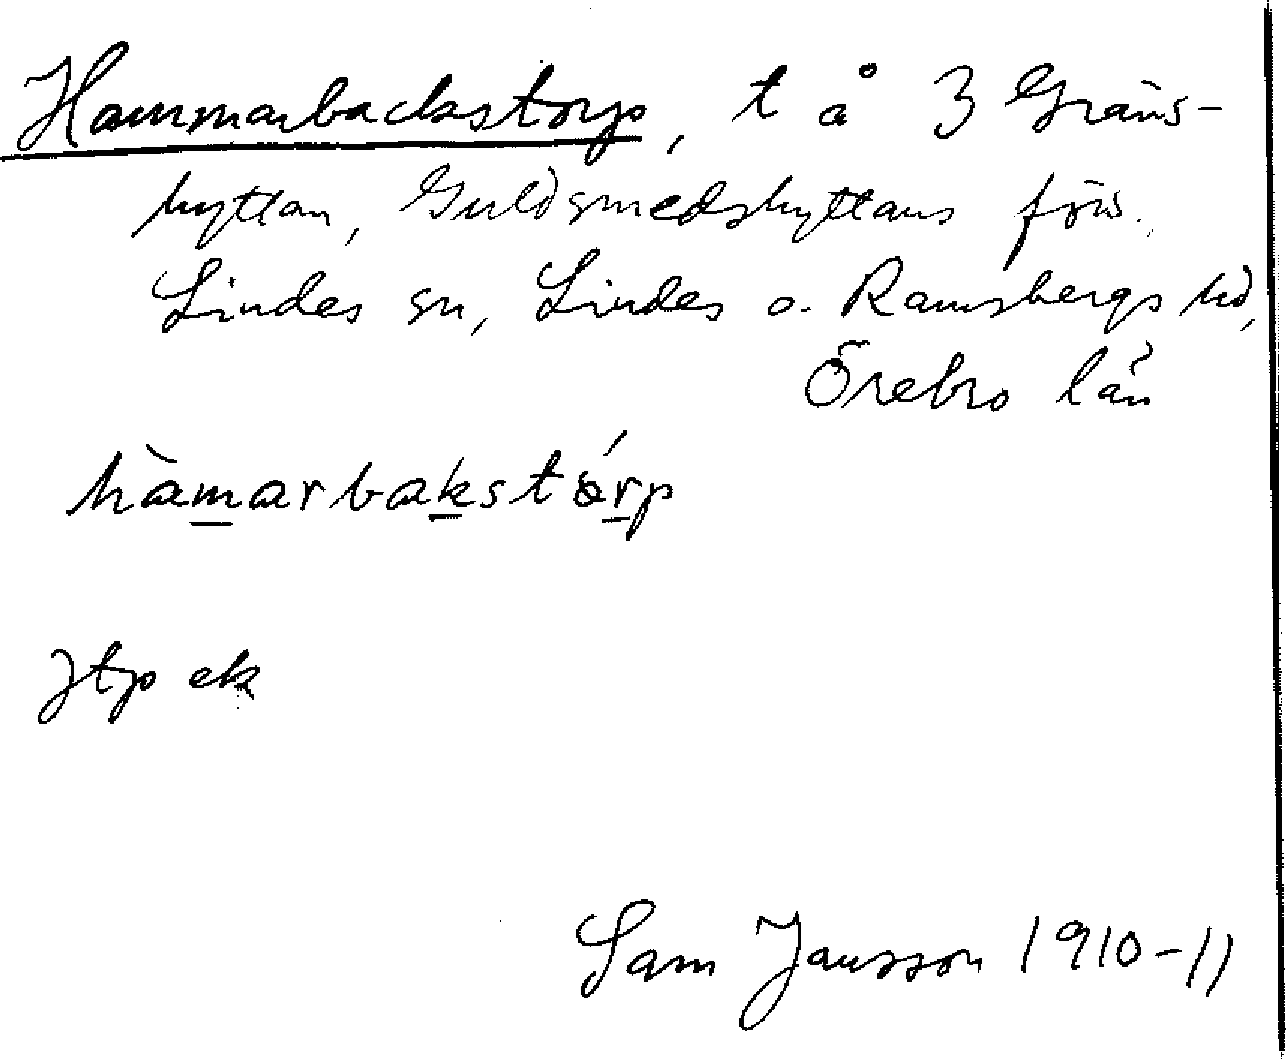 Hammarbackstorp, t å 3 Gräns-
hyttan, Guldsmedshyttans förs.
Lindes sn, Lindes o. Ramsbergs hd,
Örebro län
hàmarbakstórp
Jtp ek
Sam Jansson 1910-11